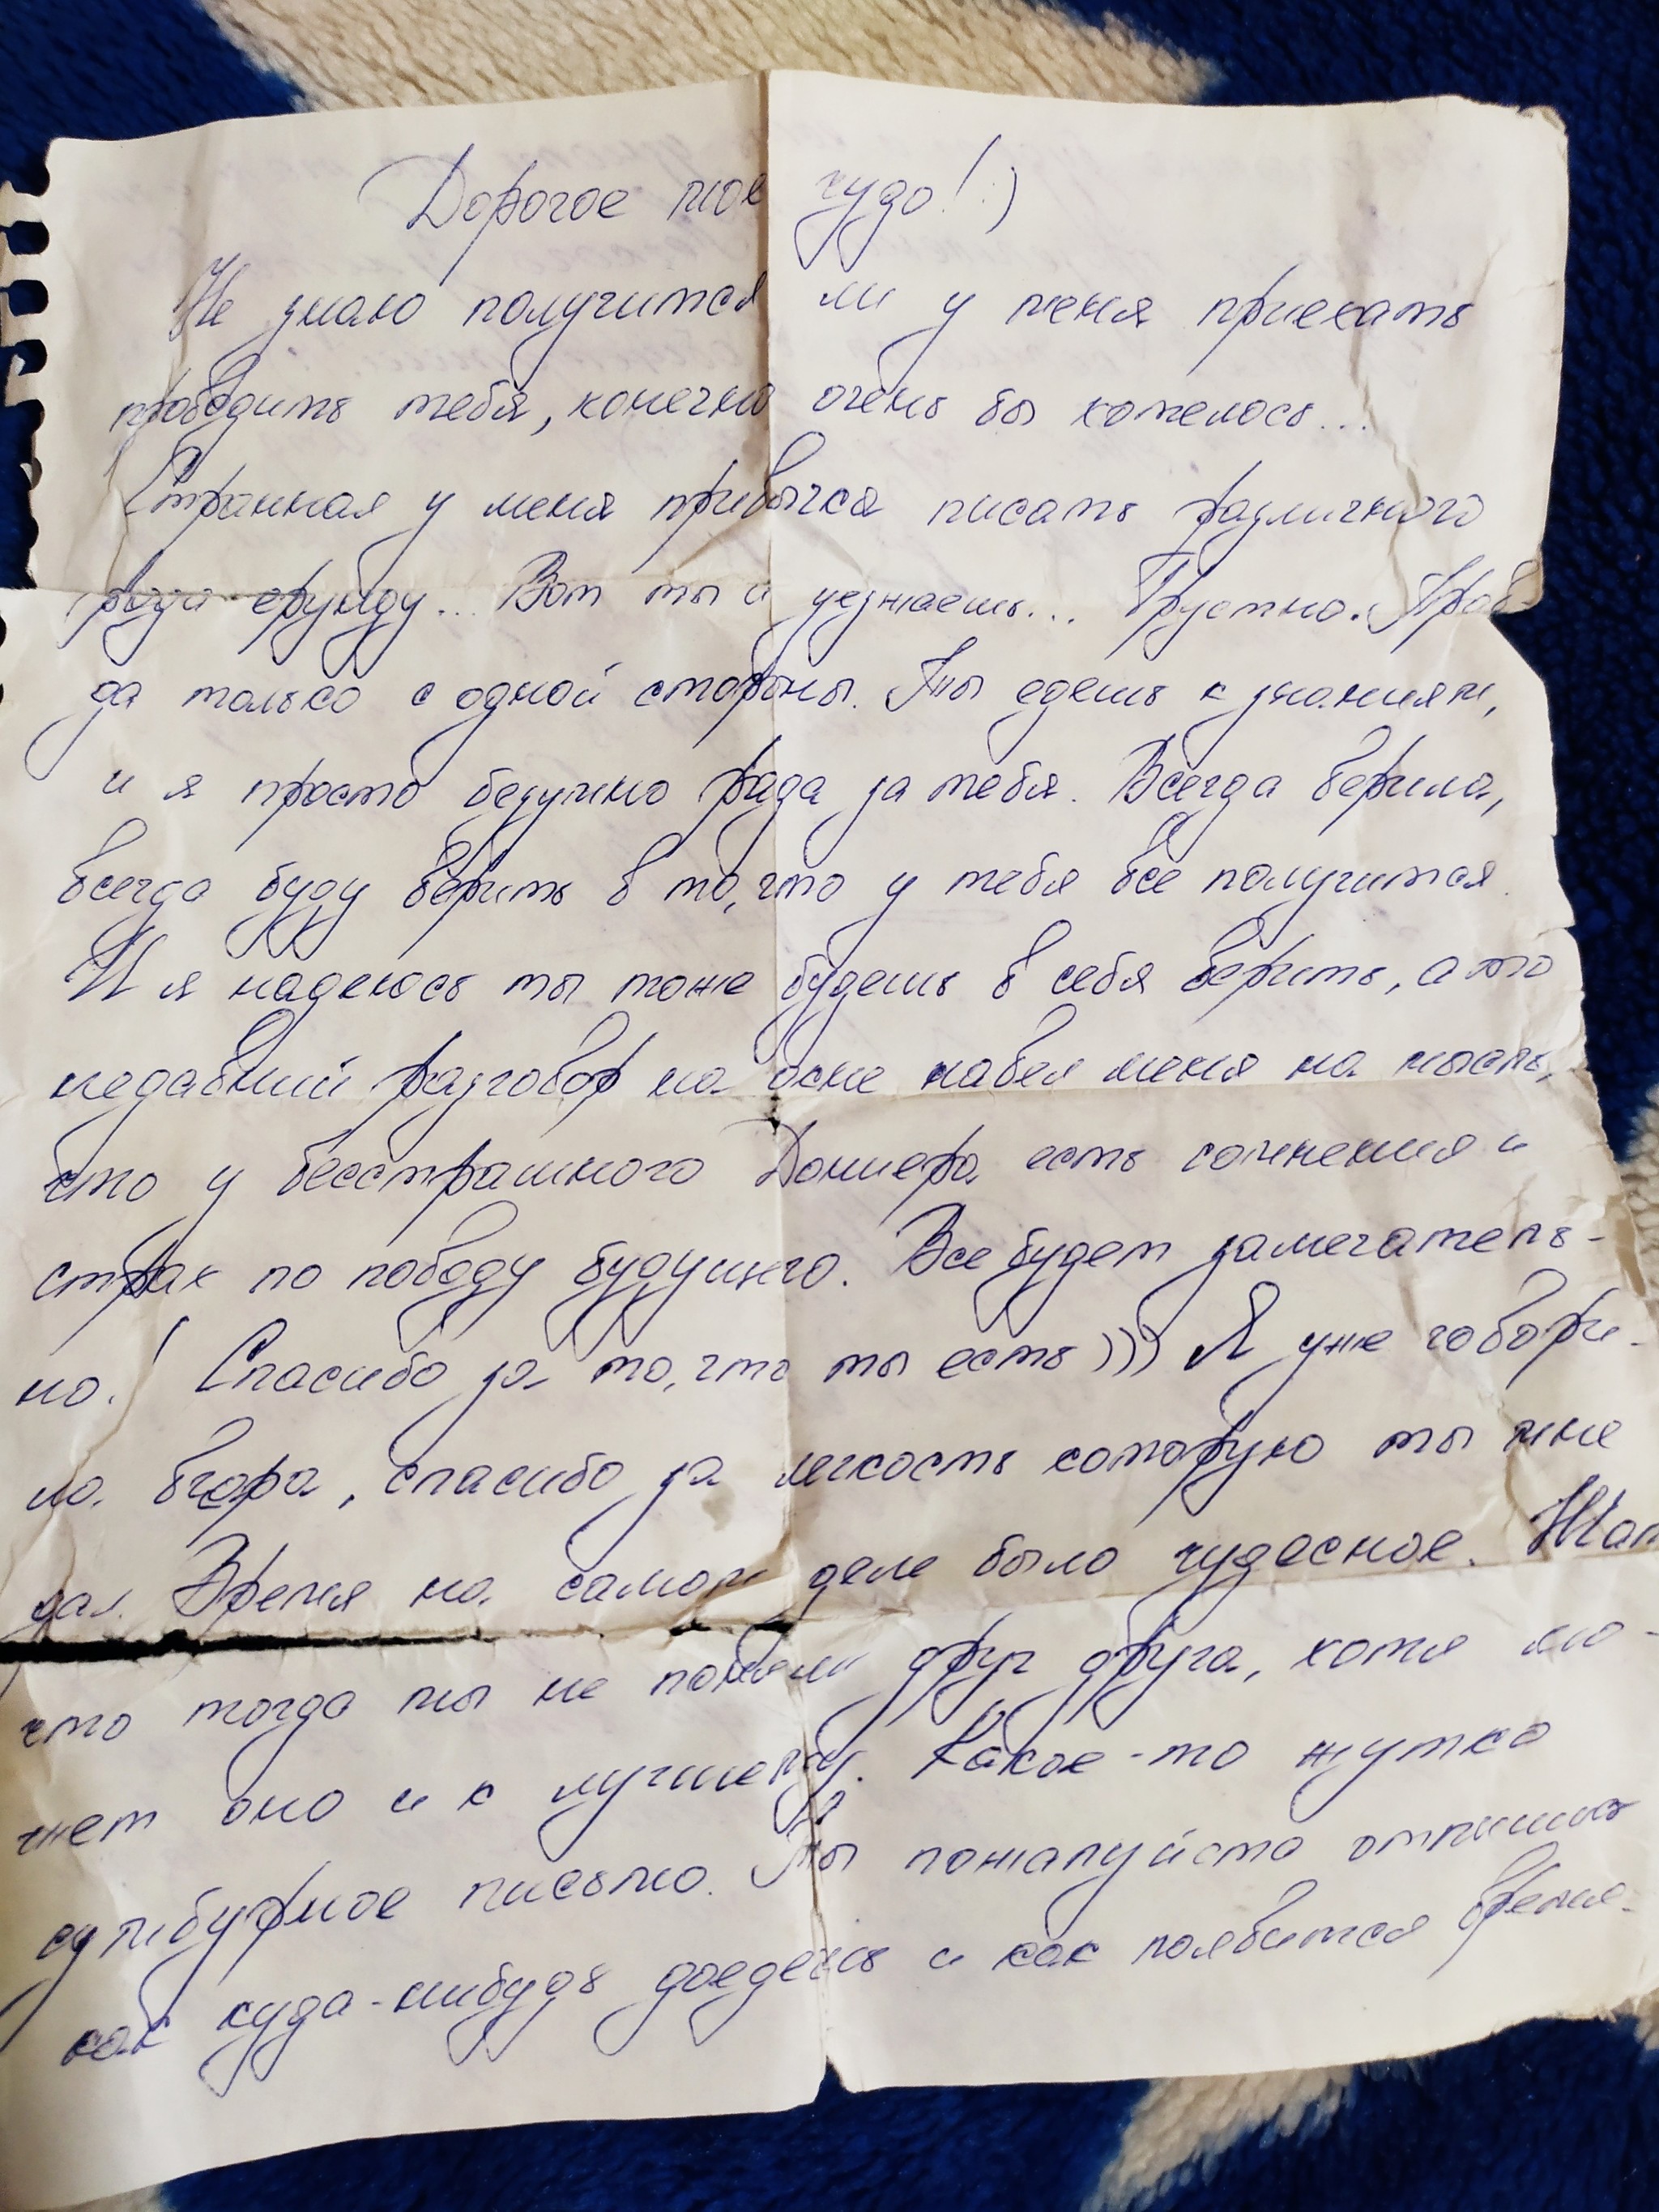 Дорогое мое чудо! :)
Не знаю получится ли у меня приехать
проводить тебя, конечно очень бы хотелось...
Странная у меня привычка писать различного
рода ерунду... Вот ты и уезжаешь... Грустно. Прав-
да только с одной стороны. Ты едешь к знаниям,
и я просто безумно рада за тебя. Всегда верила,
всегда буду верить в то, что у тебя все получится.
И я надеюсь ты тоже будешь в себя верить, а то
недавний разговор на окне навел меня на мысль,
что у бесстрашного Дониера есть сомнения и
страх по поводу будущего. Все будет замечатель-
но! Спасибо за то, что ты есть))) Я уже говори-
ла вчера, спасибо за легкость которую ты мне
дал. Время на самом деле было чудесное. Жаль
что тогда мы не поняли друг друга, хотя мо-
жет оно и к лучшему. Какое-то жутко
сумбурное письмо. Ты пожалуйста отпиши
как куда-нибудь доедешь и как появится время.